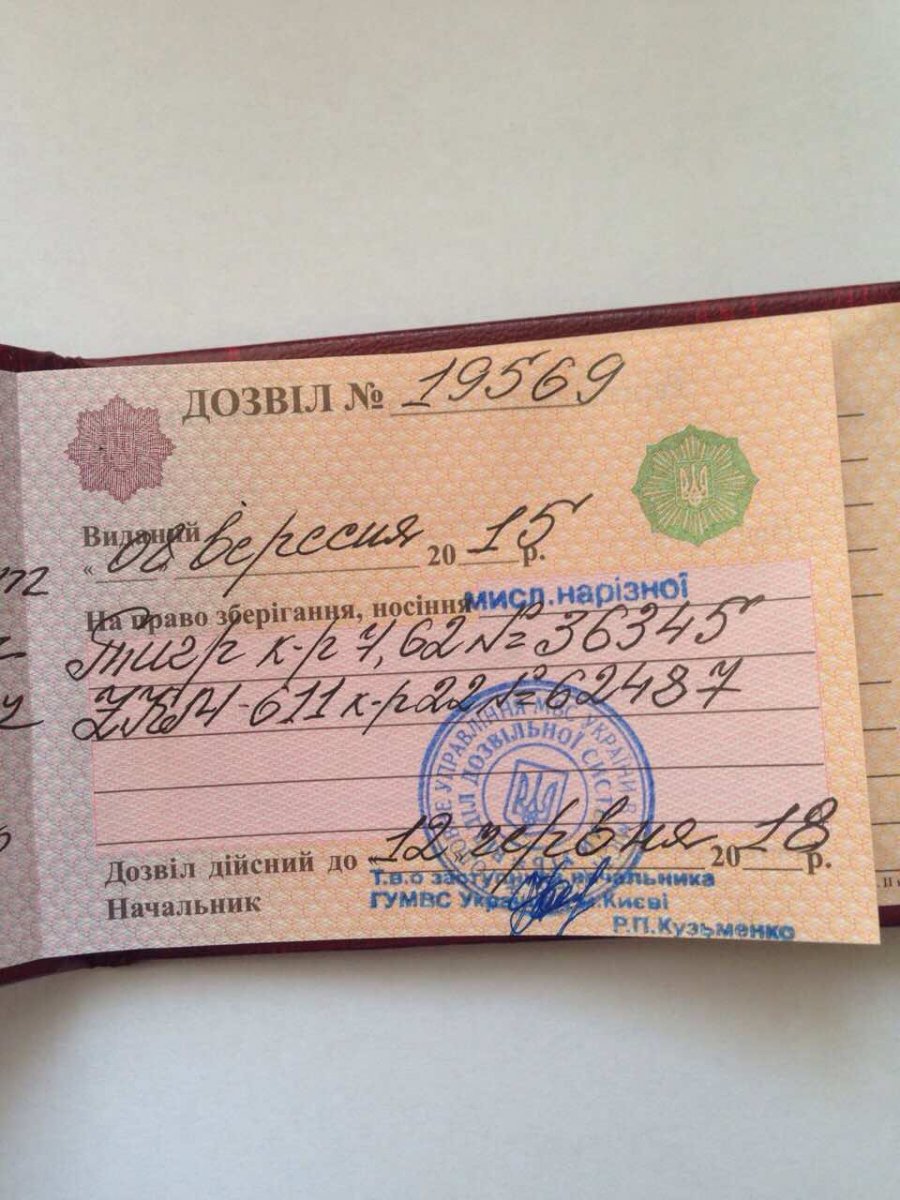 ДОЗВІЛ № 19569
Виданий
« 08 вересня 2015 р.
На право зберігання, носіння мисл.нарізної
Тигр к-р 7,62 № 36345
ZKM-611 к-р 22 № 62487
УПРАВЛІННЯ МВС УКРАЇНИ В М.
ВІДДІЛ ДОЗВІЛЬНОЇ СИСТЕМИ
Дозвіл дійсний до «12 червня 2018 р.
Т.в.о заступника начальника
Начальник
ГУМВС України в м.Києві
Р.П.Кузьменко